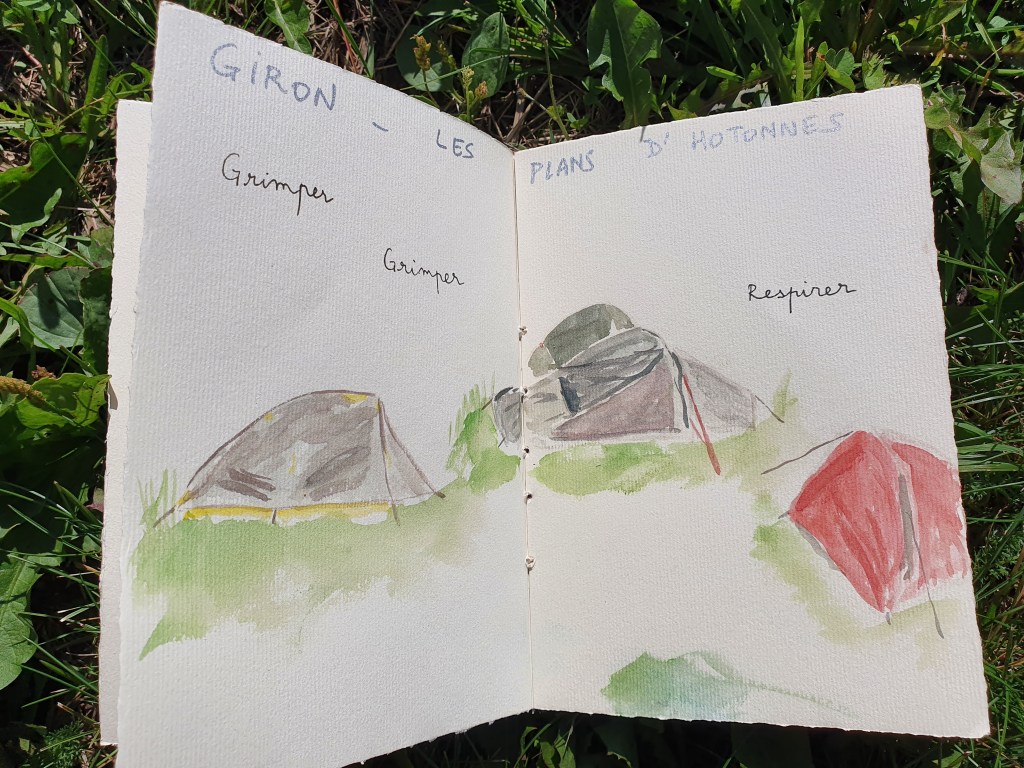 GIRON - LES PLANS D'HOTONNES
Grimper
Grimper
Respirer